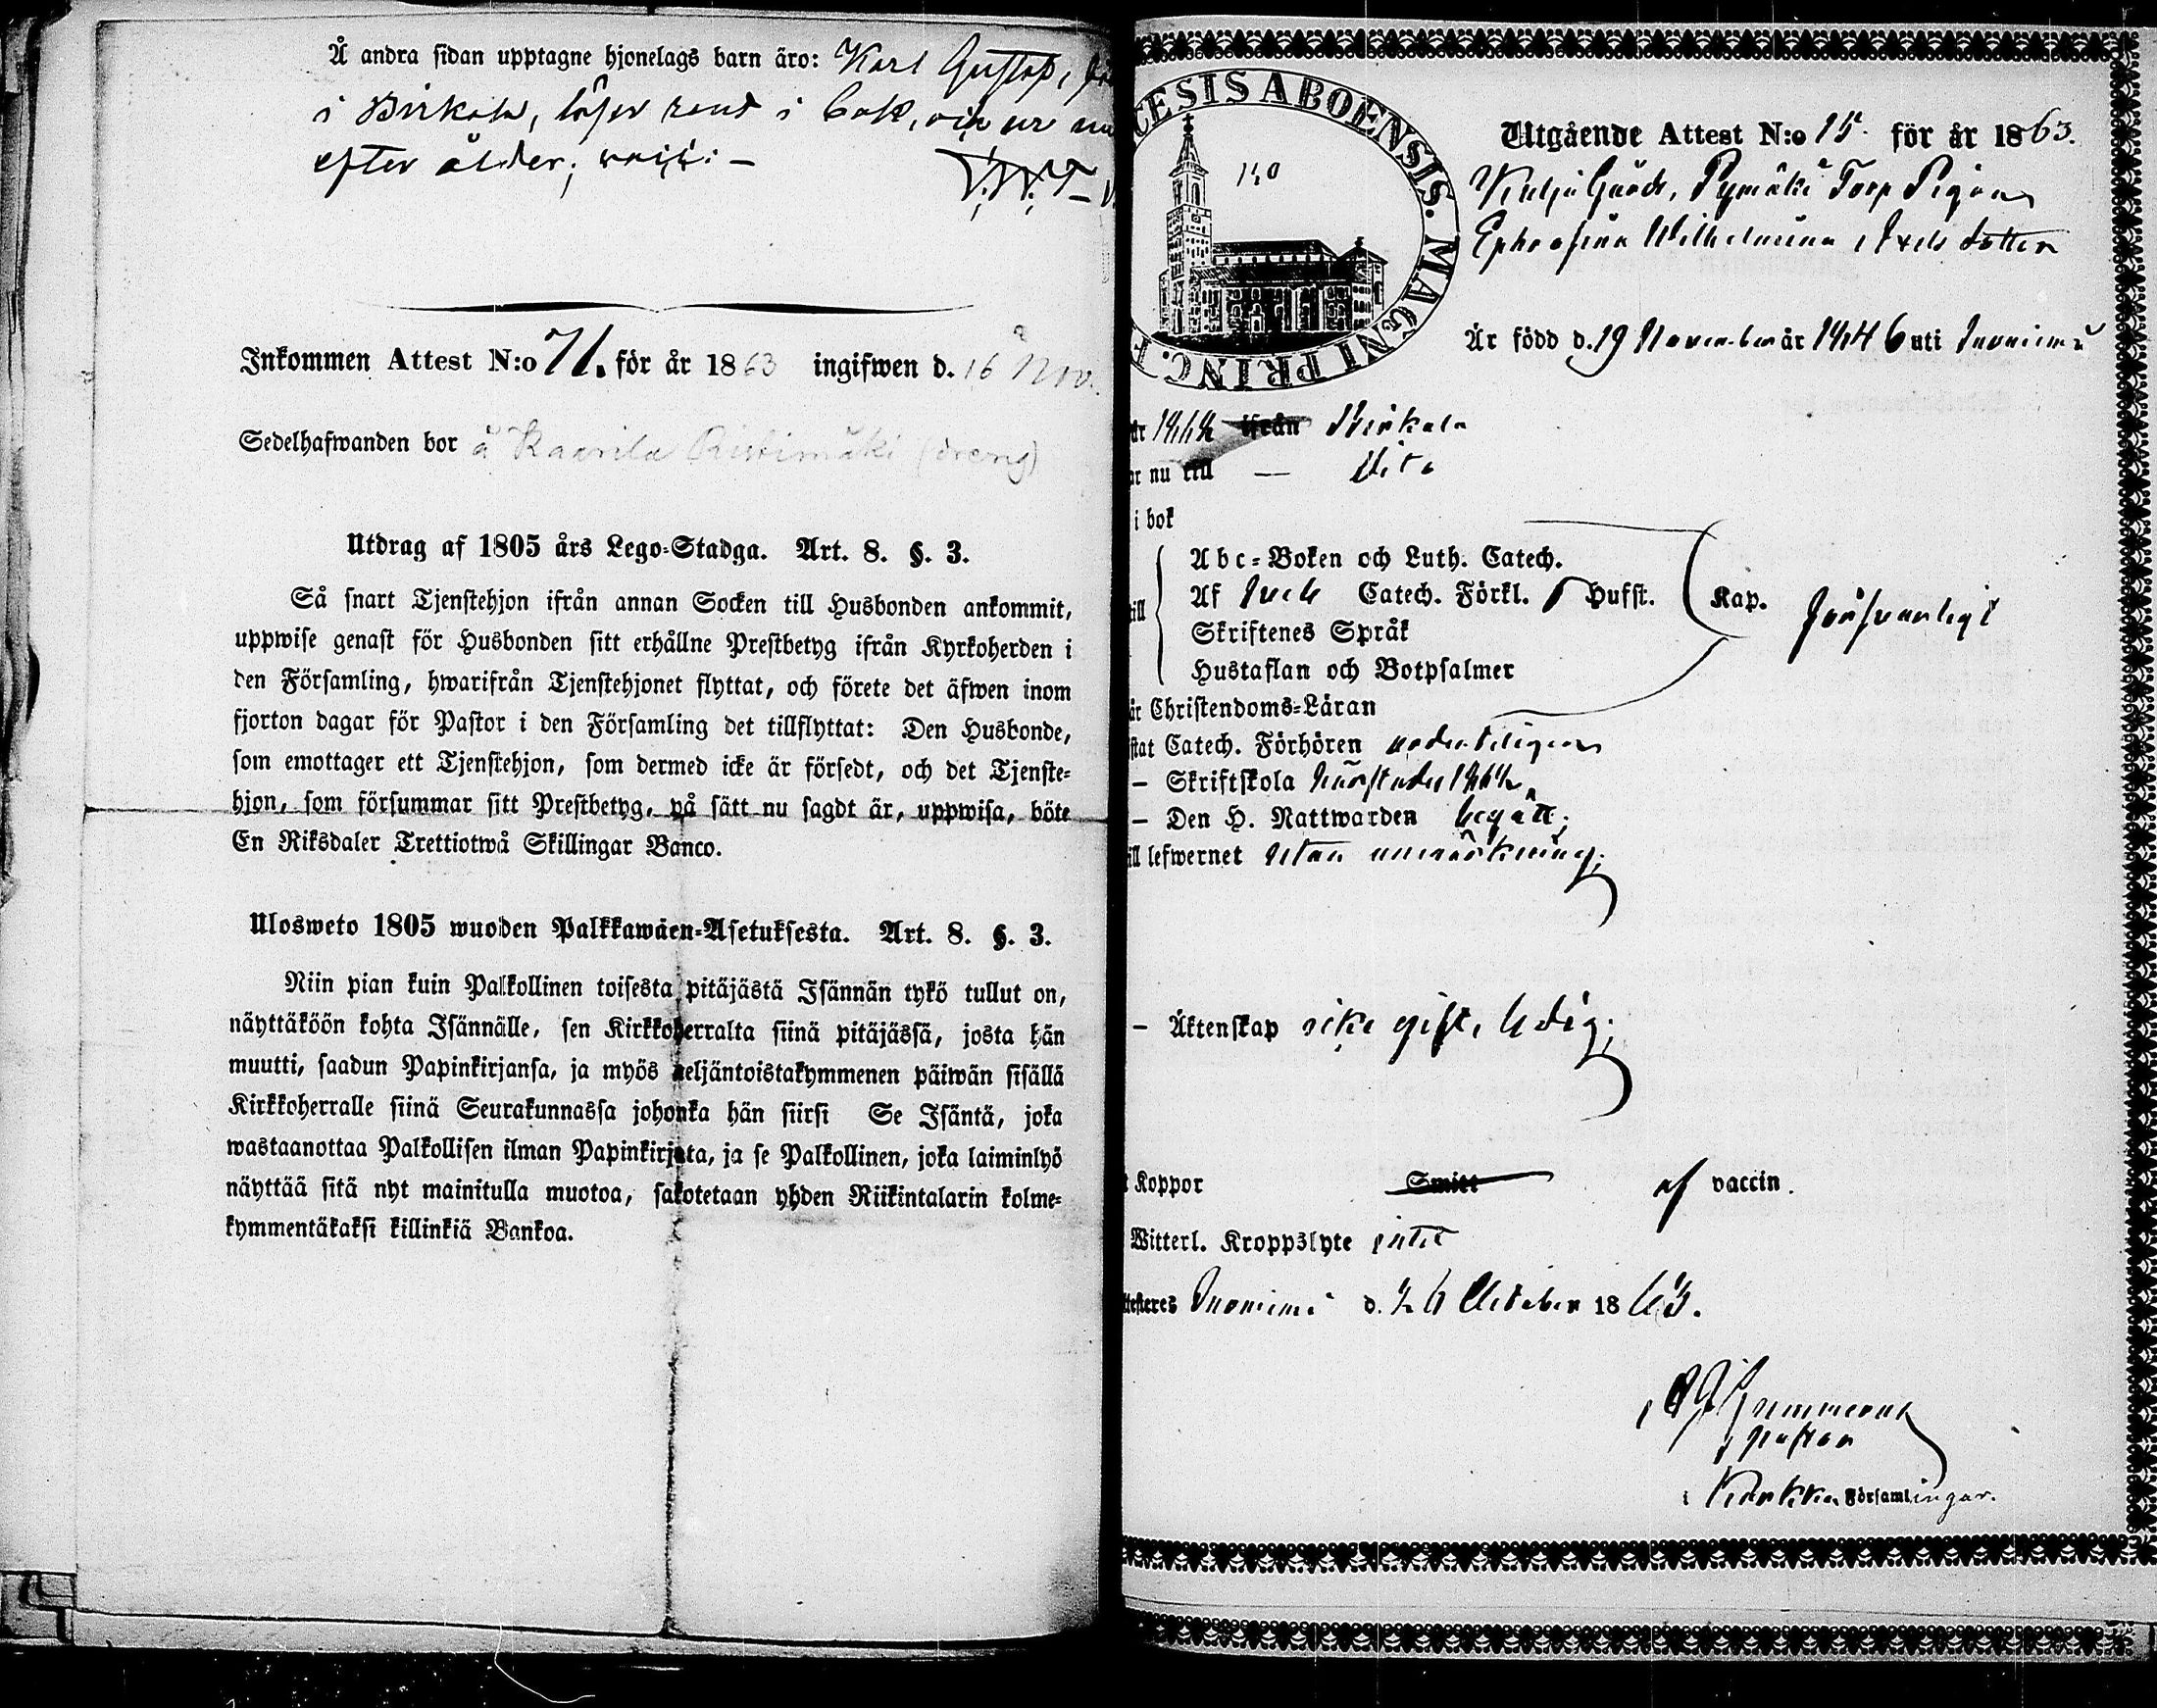 Å andra sidan upptagne hjonelags barn äro: Karl Gustaf,
i Birkala, läser rent i bok,
efter ålder;
Inkommen Attest N:o 71. för år 1863 ingifwen d. 16 Nov.
Sedelhafwanden bor å Kaarila Ristimäki (dreng)
Utdrag af 1805 års Lego-Stadga. Art. 8. §. 3.
Så snart Tjenstehjon ifrån annan Socken till Husbonden ankommit,
uppwise genast för Husbonden sitt erhållne Prestbetyg ifrån Kyrkoherden i
den Församling, hwarifrån Tjenstehjonet flyttat, och förete det äfwen inom
fjorton dagar för Pastor i den Församling det tillflyttat: Den Husbonde,
som emottager ett Tjenstehjon, som dermed icke är försedt, och det Tjenste-
hjon, som försummar sitt Prestbetyg, på sätt nu sagdt är, uppwisa, böte
En Riksdaler Trettiotwå Skillingar Banco.
Ulosweto 1805 wuoden Palkkawäen-Asetuksesta. Art. 8. §. 3.
Niin pian kuin Palkollinen toisesta pitäjästä Isännän tykö tullut on,
näyttäköön kohta Isännälle, sen Kirkkoherralta siinä pitäjässä, josta hän
muutti, saadun Papinkirjansa, ja myös neljäntoistakymmenen päiwän sisällä
Kirkkoherralle siinä Seurakunnassa johonka hän siirsi Se Isäntä, joka
wastaanottaa Palkollisen ilman Papinkirjata, ja se Palkollinen, joka laiminlyö
näyttää sitä nyt mainitulla muotoa, sakotetaan yhden Riikintalarin kolme-
kymmentäkaksi killinkiä Bankoa.
ESIS ABOENSIS. MAGNI PRINC. F
140
Utgående Attest N:o 15. för år 1863.
Torp Pigan
Wilhelmina Axels dotter
Är född d. 19 November år 1846 uti Suoniemi
ifrån Birkala
nu till — Dito
i bok
Abc-Boken och Luth. Catech.
Af Catech. Förkl. Hufst. Kap. försvarligt
Skriftenes Språk
Hustaflan och Botpsalmer
Christendoms-Läran
Catech. Förhören ordentligen
– Skriftskola
– Den H. Nattwarden begått;
lefwernet utan anmärkning;
– Äktenskap icke gift, ledig;
Koppor Smitt af vaccin.
Witterl. Kroppslyte intet
Suoniemi d. 26 October 1863.
pastor
i Karkku Församlingar.